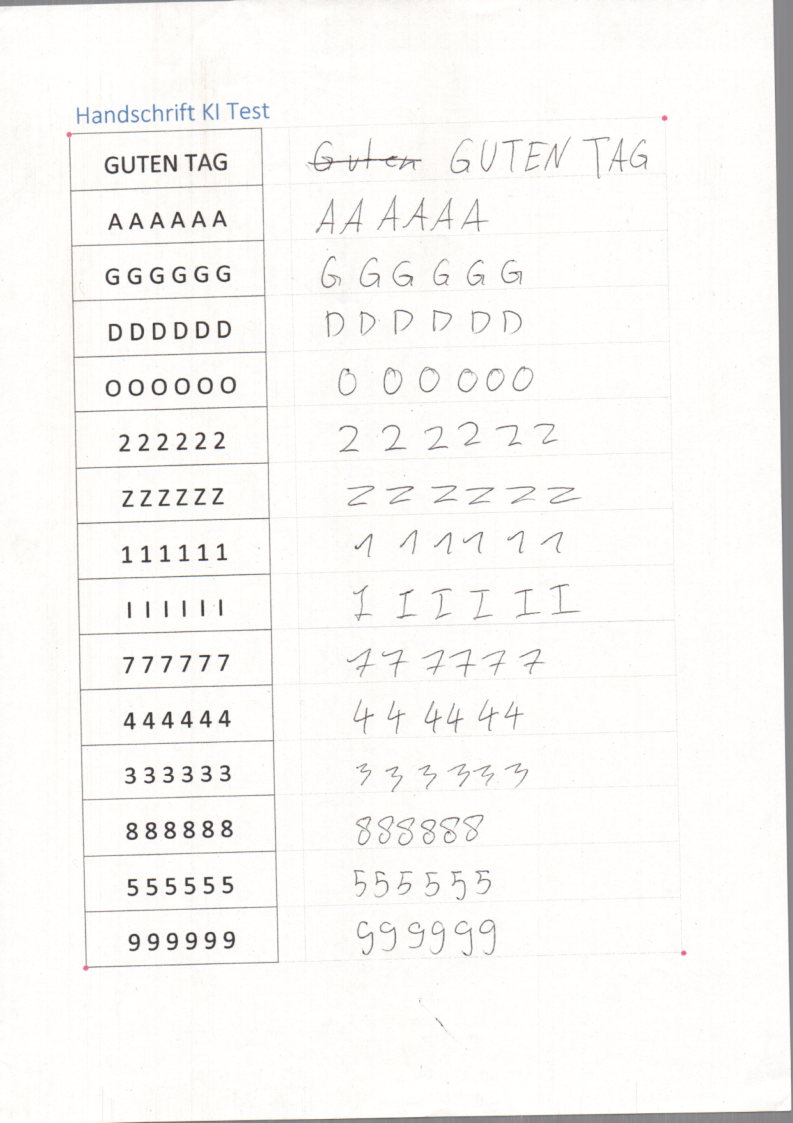 Handschrift KI Test
GUTEN TAG Guten GUTEN TAG
A A A A A A A A A A A A
G G G G G G G G G G G G
D D D D D D D D D D D D
O O O O O O O O O O O O
2 2 2 2 2 2 2 2 2 2 2 2
Z Z Z Z Z Z Z Z Z Z Z Z
1 1 1 1 1 1 1 1 1 1 1 1
I I I I I I I I I I I I
7 7 7 7 7 7 7 7 7 7 7 7
4 4 4 4 4 4 4 4 4 4 4 4
3 3 3 3 3 3 3 3 3 3 3 3
8 8 8 8 8 8 8 8 8 8 8 8
5 5 5 5 5 5 5 5 5 5 5 5
9 9 9 9 9 9 9 9 9 9 9 9